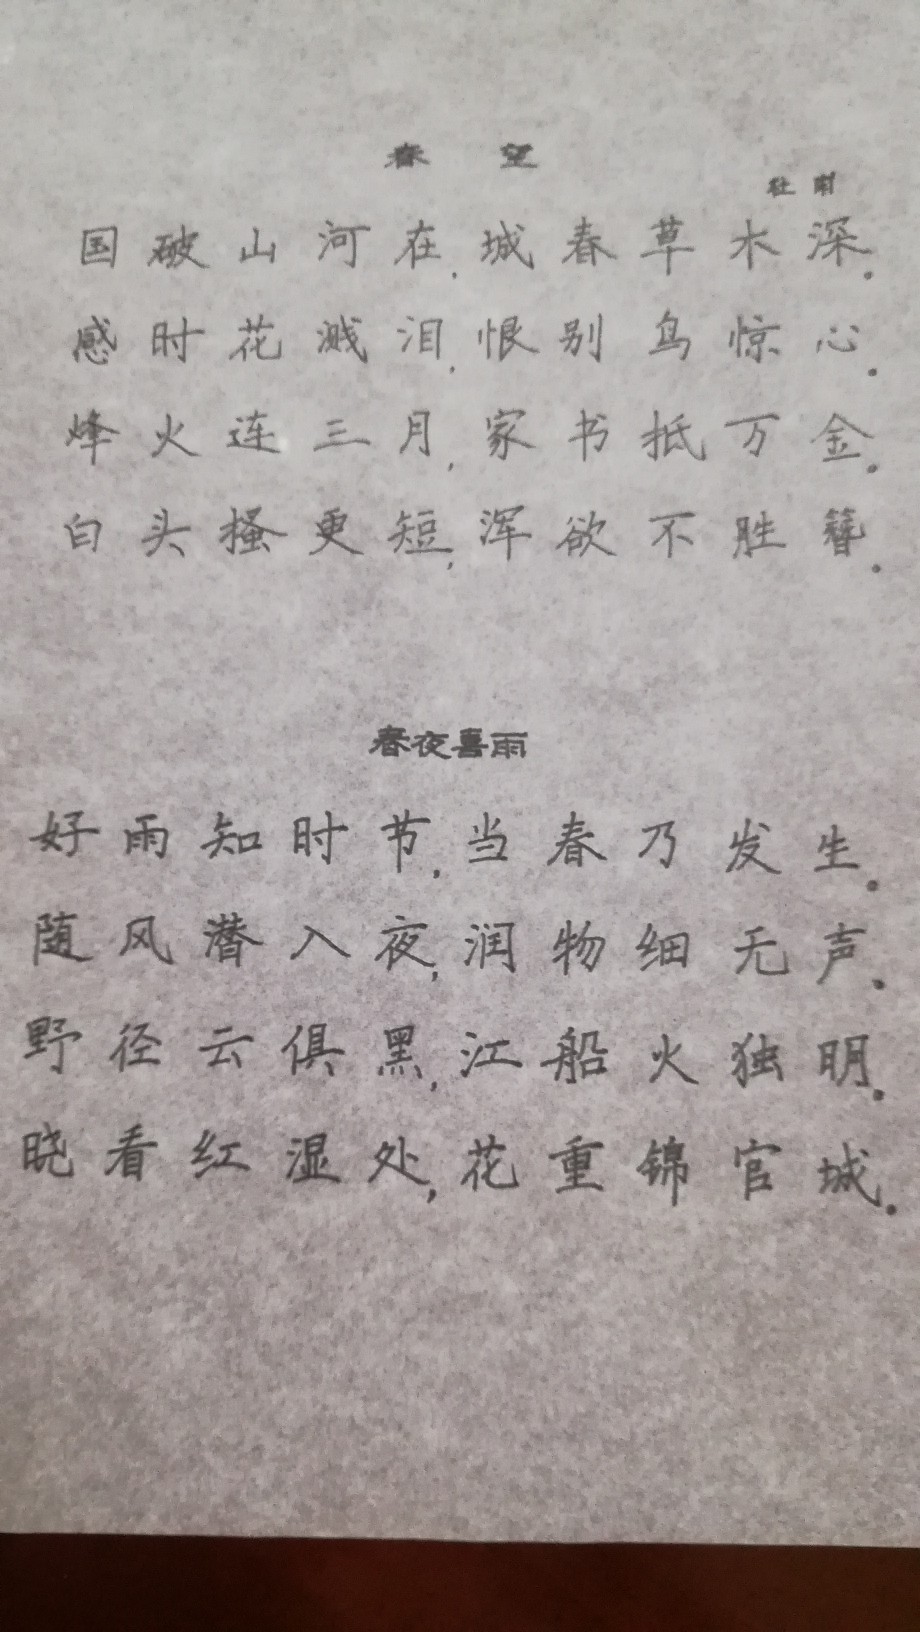 春 望
杜甫
国破山河在,城春草木深.
感时花溅泪,恨别鸟惊心.
烽火连三月,家书抵万金.
白头搔更短,浑欲不胜簪.
春夜喜雨
好雨知时节,当春乃发生.
随风潜入夜,润物细无声.
野径云俱黑,江船火独明.
晓看红湿处,花重锦官城.